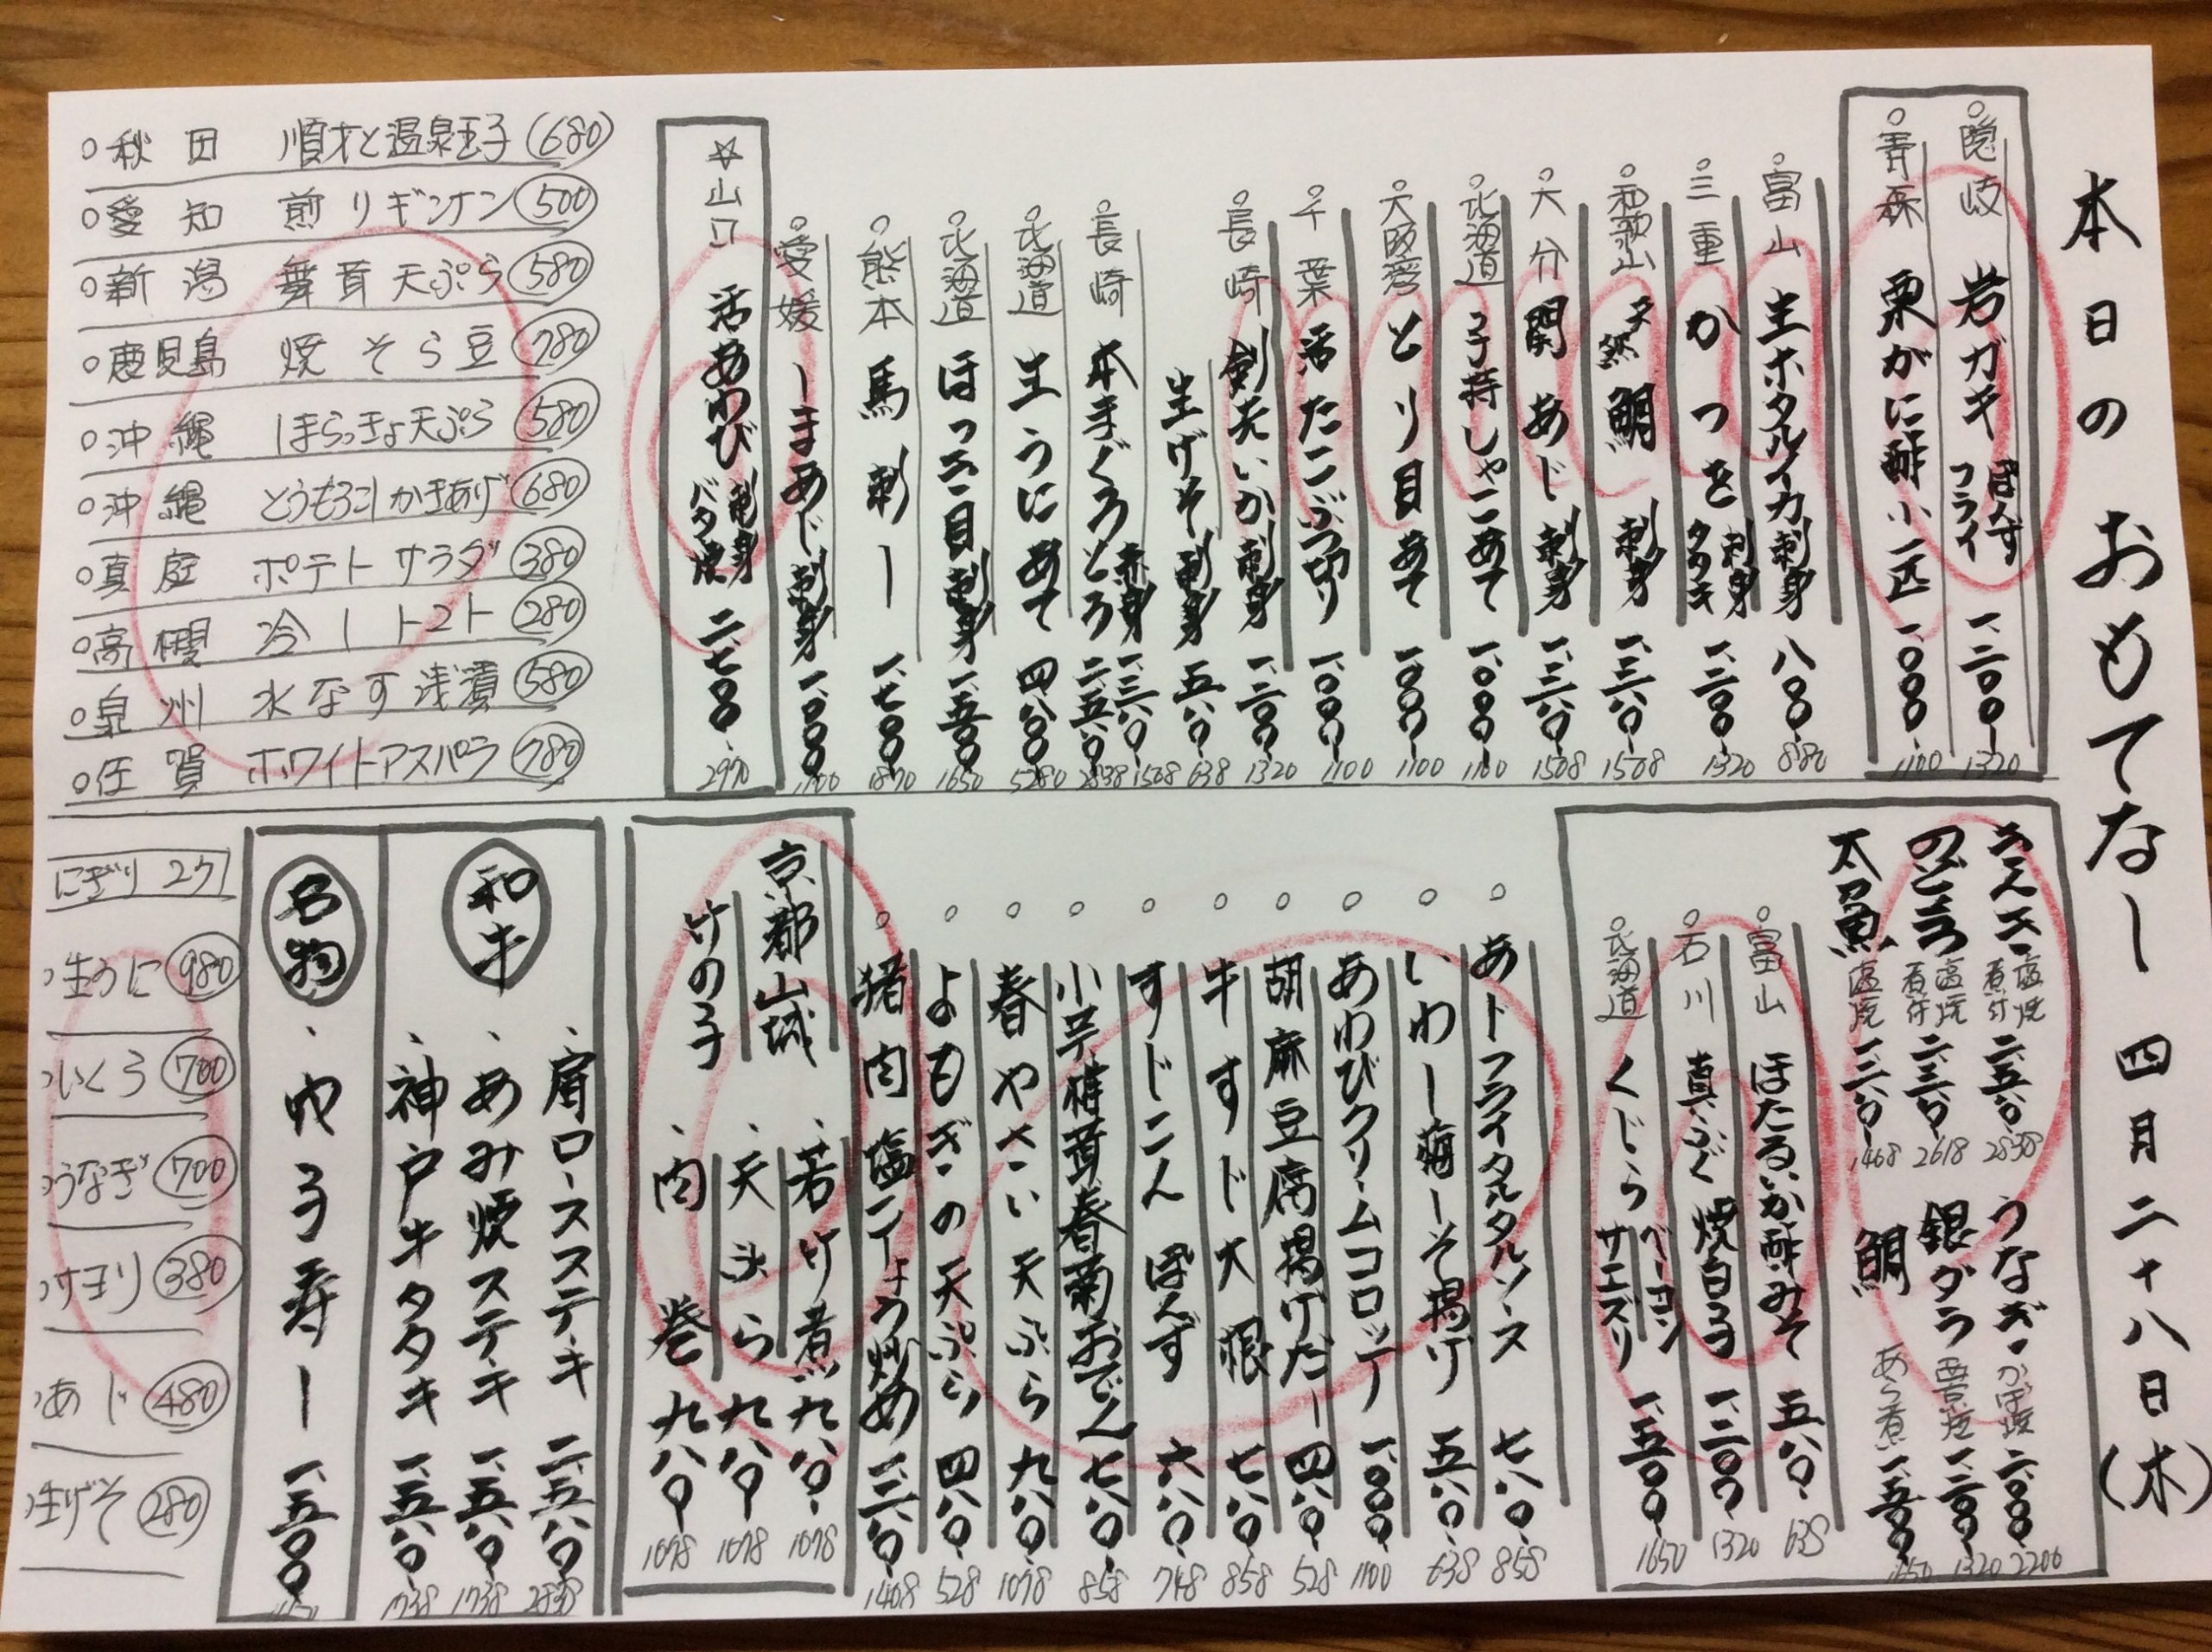 本日のおもてなし 四月二十八日(木)
○隠岐 岩ガキ ぽんず フライ 一、二〇〇 1320
○青森 栗がに酢 小一匹 一、〇〇〇 1100
○富山 生ホタルイカ刺身 八〇〇 880
○三重 かつを 刺身 タタキ 一、二〇〇 1320
○和歌山 天然 鯛 刺身 一、三八〇 1508
○大分 関あじ 刺身 一、三八〇 1508
○北海道 子持しゃこあて 一、〇〇〇 1100
○大阪湾 とり貝あて 一、〇〇〇 1100
○千葉 活たこぶつ切り 一、〇〇〇 1100
○長崎 剣先いか刺身 一、二〇〇 1320
生げそ刺身 五八〇 638
○長崎 本まぐろ 赤身 一、三八〇 1508 とろ 二、五八〇 2838
○北海道 生うにあて 四、八〇〇 5280
○北海道 ほっき貝刺身 一、五〇〇 1650
○熊本 馬刺し 一、七〇〇 1870
○愛媛 しまあじ刺身 一、〇〇〇 1100
☆山口 活あわび 刺身 バター焼 二、七〇〇 2970
○秋田 順才と温泉玉子 (680)
○愛知 煎りギンナン 500
○新潟 舞茸天ぷら 580
○鹿児島 焼そら豆 780
○沖縄 しまらっきょ天ぷら 580
○沖縄 とうもろこしかきあげ 680
○真庭 ポテトサラダ 380
○高槻 冷しトマト 280
○泉州 水なす浅漬 580
○佐賀 ホワイトアスパラ 780
きんき 塩焼 煮付 二、五八〇 2838
のどぐろ 塩焼 煮付 二、三八〇 2618
太刀魚 塩焼 一、三八〇 1468
うなぎ かば焼 二、〇〇〇 2200
銀ダラ 西京焼 一、二〇〇 1320
鯛 あら煮 一、五〇〇 1650
○富山 ほたるいか酢みそ 五八〇 638
○石川 真ふぐ 焼白子 一、二〇〇 1320
○北海道 くじら ベーコン サエズリ 一、五〇〇 1650
○あじフライタルタルソース 七八〇 858
○いわし梅しそ揚げ 五八〇 638
○あわびクリームコロッケ 一、〇〇〇 1100
○胡麻豆腐揚げだし 四八〇 528
○牛すじ大根 七八〇 858
○すじこんぽんず 六八〇 748
○小芋椎茸春菊おでん 七八〇 858
○春やさい天ぷら 九八〇 1078
○よもぎの天ぷら 四八〇 528
○猪肉塩こしょう炒め 一、二八〇 1408
京都山城
竹の子
、若竹煮 九八〇 1078
、天ぷら 九八〇 1078
、肉巻 九八〇 1078
和牛
、肩ロースステーキ 二、五八〇 2838
、あみ焼ステーキ 一、五八〇 1738
、神戸牛タタキ 一、五八〇 1738
名物
、穴子寿し 一、五〇〇
にぎり 2ケ
生うに 980
いくら 700
うなぎ 700
サヨリ 380
あじ 480
生げそ 280